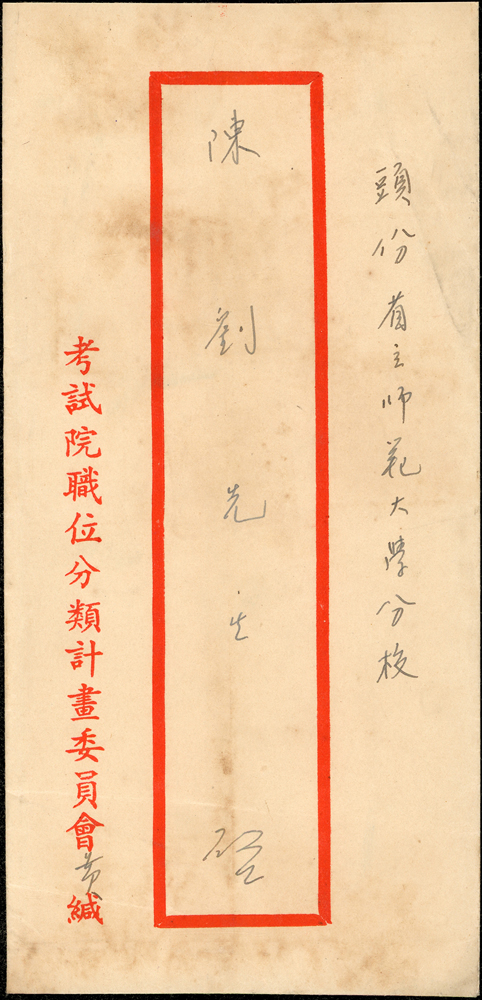 頭份省立師范大學分校
陳劉先生啟
考試院職位分類計畫委員會黃緘